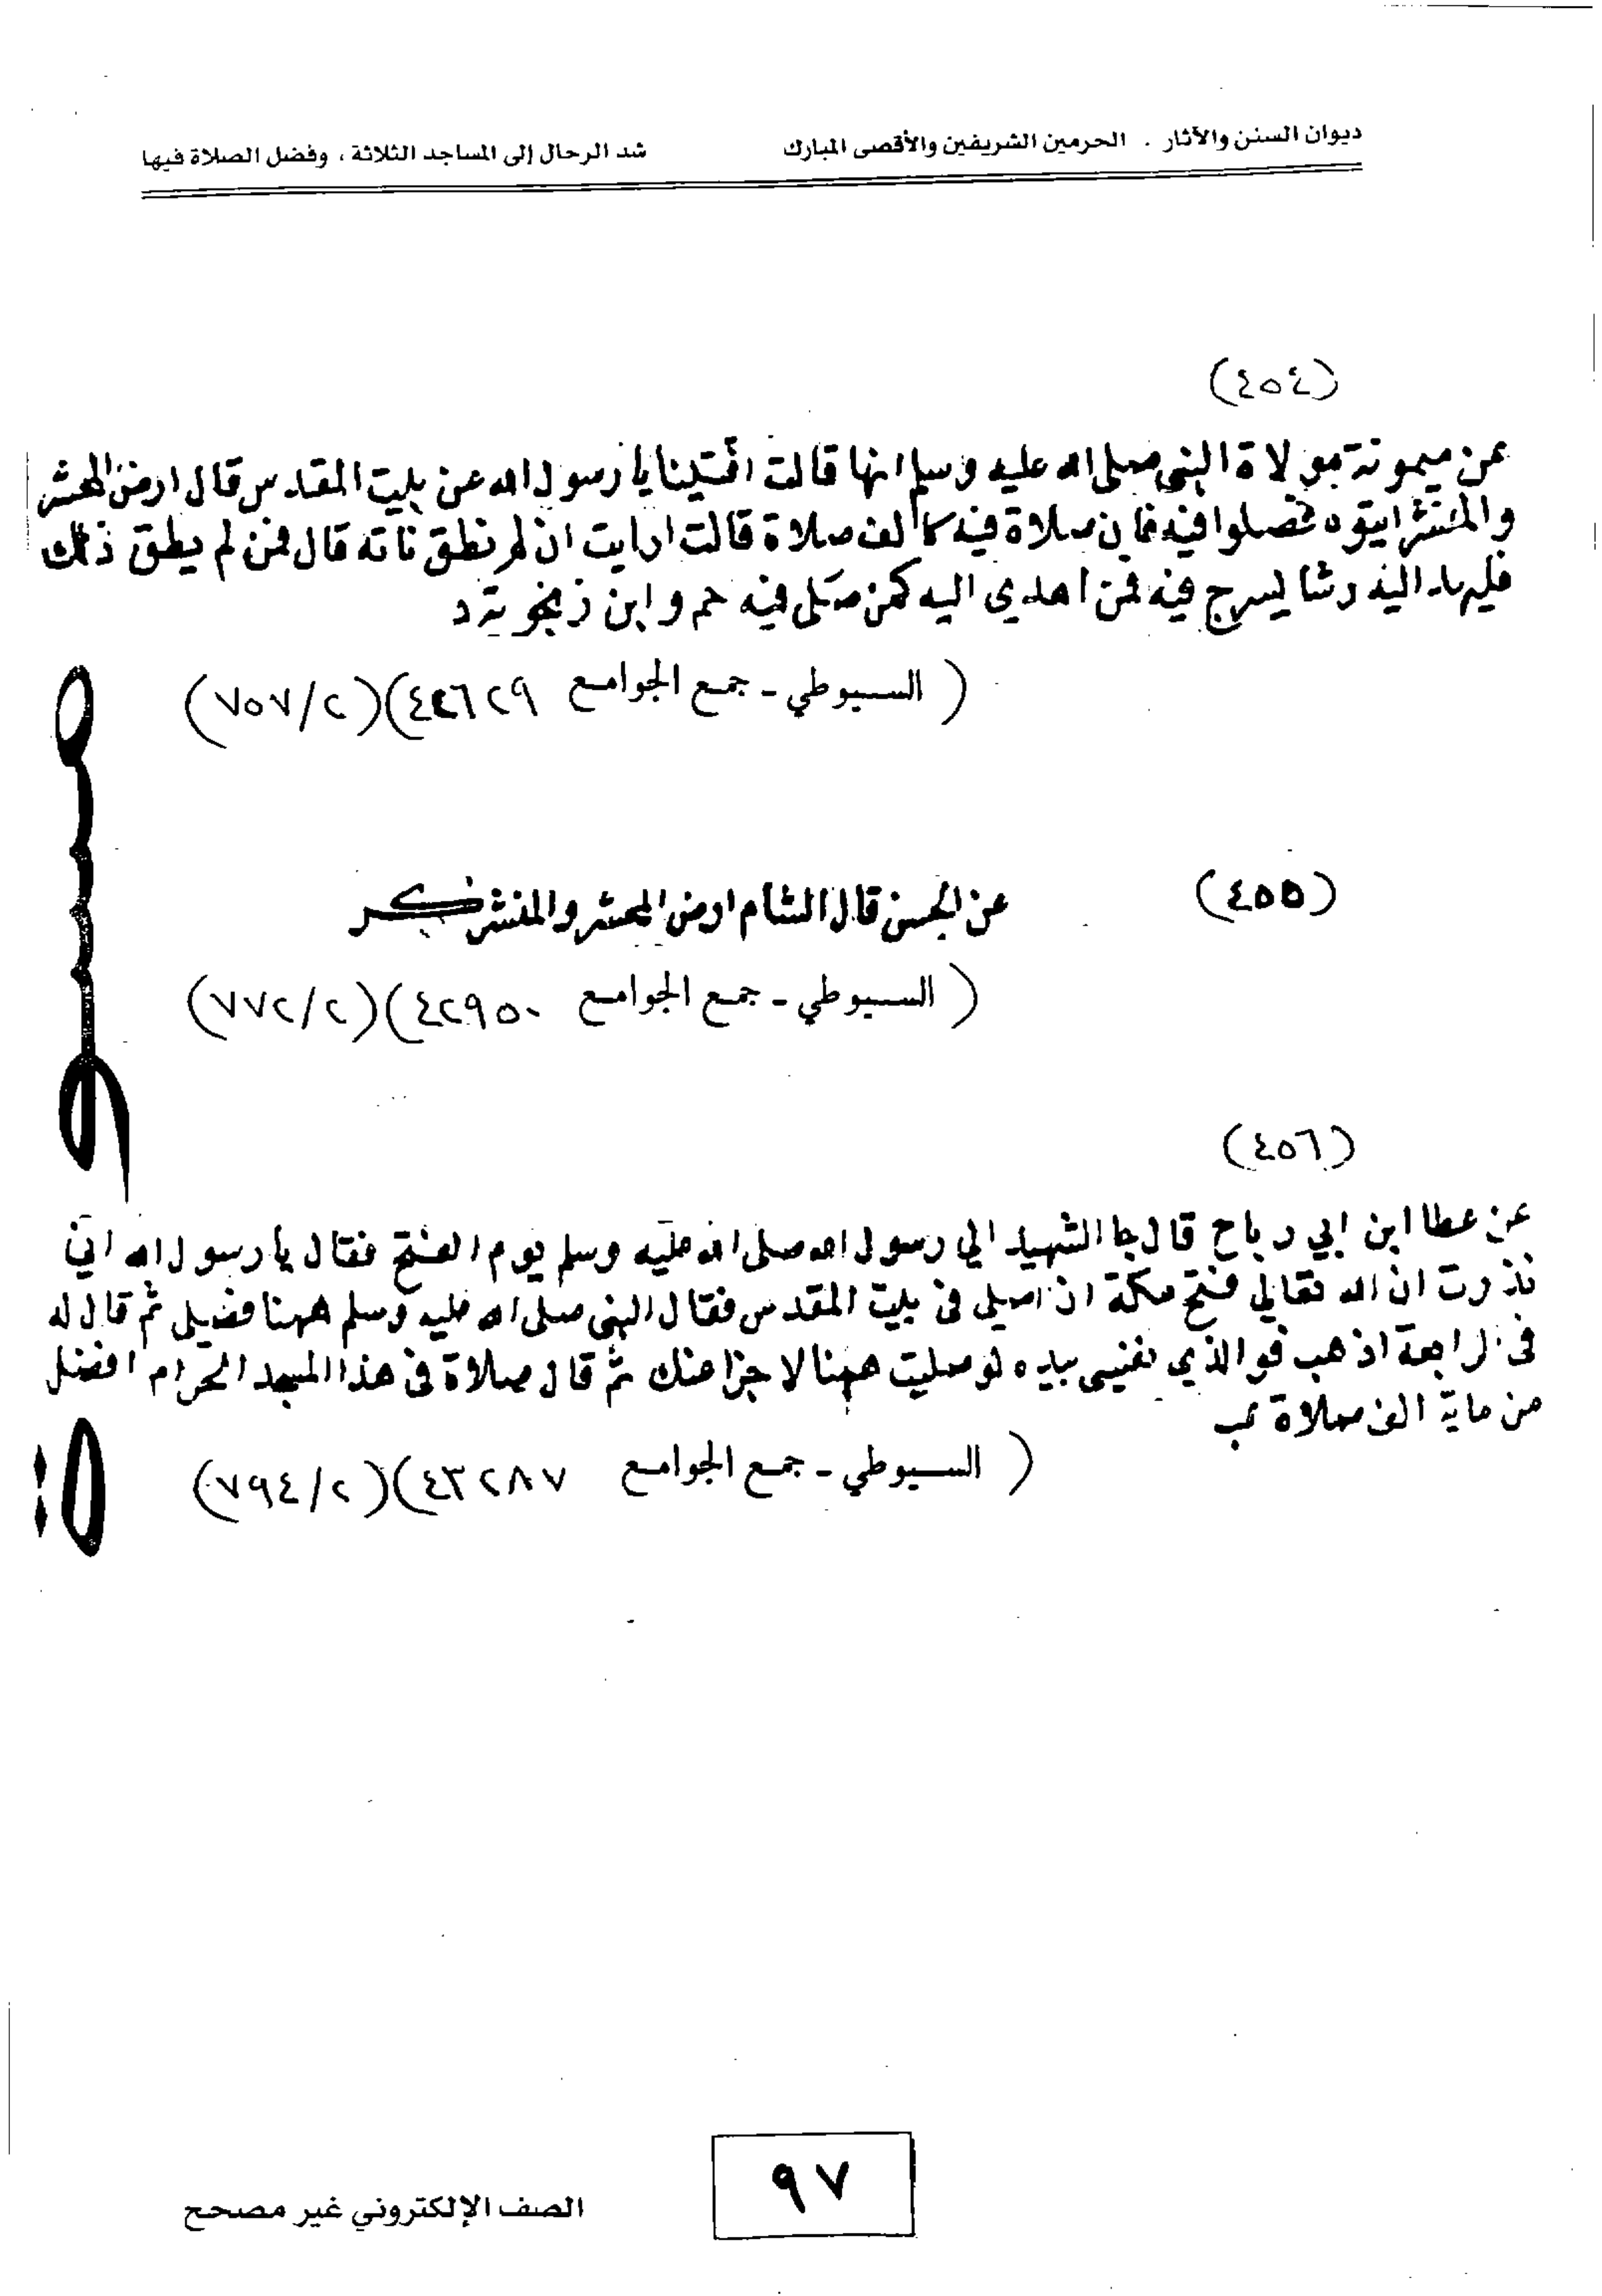 ديوان السنن والآثار . الحرمين الشريفين والأقصى المبارك شد الرحال إلى المساجد الثلاثة ، وفضل الصلاة فيها
(٤٥٤)
عن ميمونة مولاة النبى صلى الله عليه وسلم انها قالت افتينا يا رسول الله عن بيت المقدس قال ارض المحشر
والمنشر ايتوه فصلوا فيه فان صلاة فيه كالف صلاة قالت ارايت ان لم نطق ناته قال فمن لم يطق ذلك
فليهد اليه زيتا يسرج فيه فمن اهدي اليه كمن صلى فيه حم وابن زنجوية د
(السيوطي - جمع الجوامع ٤٢٦٢٩)(٧٥٧/٢)
(٤٥٥) عن الحسن قال الشام ارض المحشر والمنشر كر
(السيوطي - جمع الجوامع ٤٢٩٥٠)(٧٧٢/٢)
(٤٥٦)
عن عطا ابن ابي رباح قال جا الشهيد الي رسول الله صلى الله عليه وسلم يوم الفتح فقال يا رسول الله اني
نذرت ان الله تعالي فتح مكة ان اصلي فى بيت المقدس فقال النبى صلى الله عليه وسلم ههنا فضيلى ثم قال له
فى الرابعة اذهب فوالذي نفسى بيده لو صليت ههنا لاجزا عنك ثم قال صلاة فى هذا المسجد الحرام افضل
من ماية الف صلاة عب
(السيوطي - جمع الجوامع ٤٣٢٨٧)(٧٩٤/٢)
٩٧
الصف الإلكتروني غير مصحح